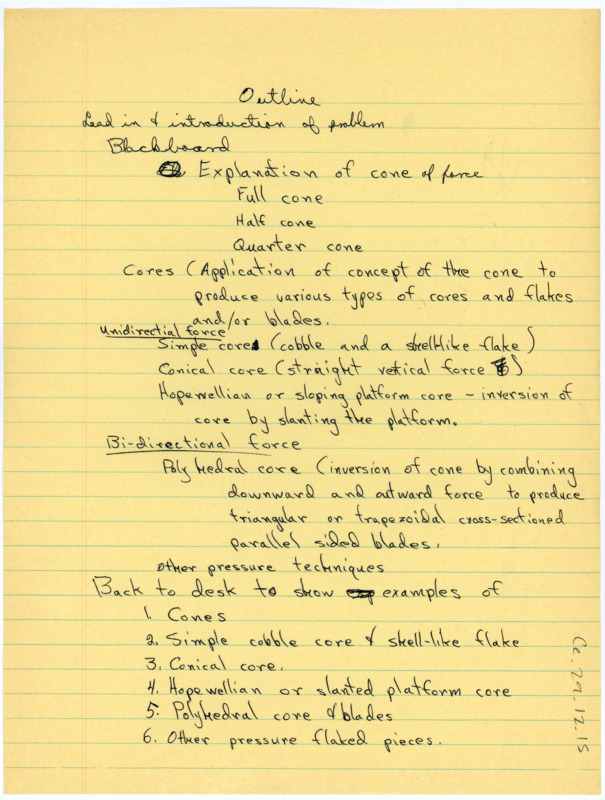 Outline
Lead in & introduction of problem
Blackboard
Explanation of cone of force
Full cone
Half cone
Quarter cone
Cores (Application of concept of the cone to
produce various types of cores and flakes
and/or blades.
Unidirectial force
Simple core (cobble and a shell-like flake)
Conical core (straight vetical force)
Hopewellian or sloping platform core - inversion of
core by slanting the platform.
Bi-directional force
Polyhedral core (inversion of cone by combining
downward and outward force to produce
triangular or trapezoidal cross-sectioned
parallel sided blades.
other pressure techniques
Back to desk to show examples of
1. Cones
2. Simple cobble core & shell-like flake
3. Conical core.
4. Hopewellian or slanted platform core
5. Polyhedral core & blades
6. Other pressure flaked pieces.
Ce.29.12.15